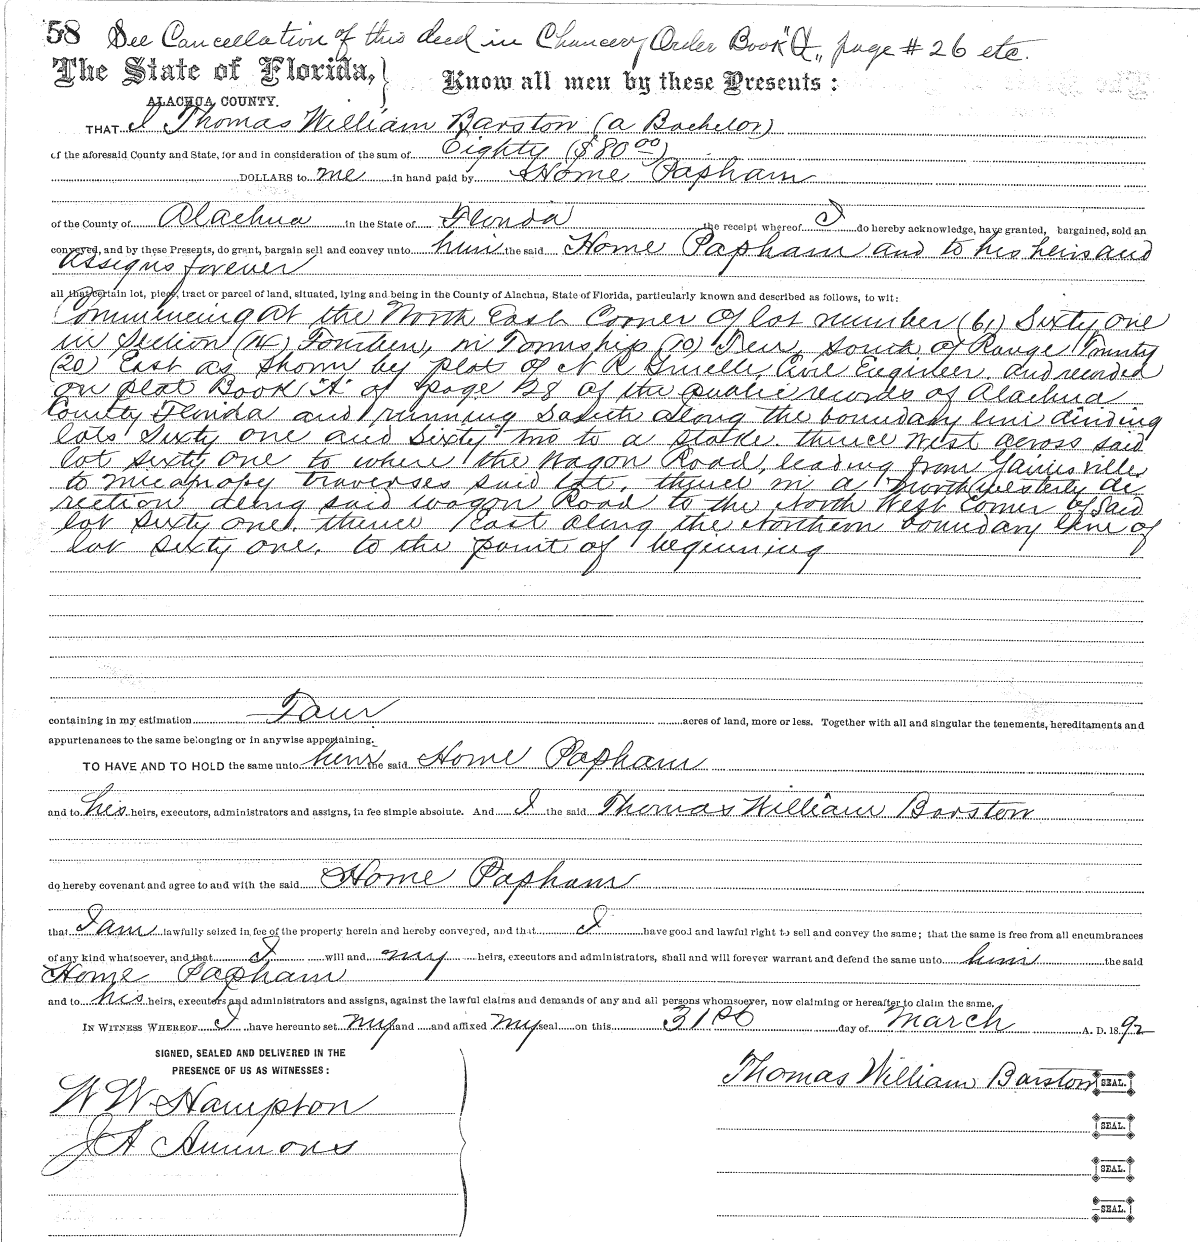 58 See Cancellation of this deed in Chancery Order Book "Q" page # 26 etc.
The State of Florida, } Know all men by these Presents:
ALACHUA COUNTY.
THAT I Thomas William Barstow (a Bachelor)
of the aforesaid County and State, for and in consideration of the sum of Eighty ($80 00)
DOLLARS to me in hand paid by Home Papham
of the County of Alachua in the State of Florida the receipt whereof I do hereby acknowledge, have granted, bargained, sold an
conveyed, and by these Presents, do grant, bargain sell and convey unto him the said Home Papham and to his heirs and
assigns forever
all that certain lot, piece, tract or parcel of land, situated, lying and being in the County of Alachua, State of Florida, particularly known and described as follows, to wit:
Commencing at the North East Corner of lot number (61) Sixty one
in Section (14) Fourteen, in Township (10) Ten, South of Range Twenty
(20) East as shown by plat of N R Civil Engineer and recorded
on plat Book "A" of page 28 of the public records of Alachua
County Florida and running South along the boundary line dividing
lots Sixty one and Sixty two to a stake. thence West across said
lot sixty one to where the Wagon Road, leading from Gainesville
to Micanopy traverses said lot, thence in a northwesterly di
rection along said wagon Road to the North West corner of said
lot sixty one. thence East along the Northern boundary line of
lot sixty one. to the point of beginning
containing in my estimation Four acres of land, more or less. Together with all and singular the tenements, hereditaments and
appurtenances to the same belonging or in anywise appertaining.
TO HAVE AND TO HOLD the same unto him the said Home Papham
and to his heirs, executors, administrators and assigns, in fee simple absolute. And I the said Thomas William Barstow
do hereby covenant and agree to and with the said Home Papham
that I am lawfully seized in fee of the property herein and hereby conveyed, and that I have good and lawful right to sell and convey the same; that the same is free from all encumbrances
of any kind whatsoever, and that I will and my heirs, executors and administrators, shall and will forever warrant and defend the same unto him the said
Home Papham
and to his heirs, executors and administrators and assigns, against the lawful claims and demands of any and all persons whomsoever, now claiming or hereafter to claim the same.
IN WITNESS WHEREOF I have hereunto set my hand and affixed my seal on this 31st day of March A. D. 1892
SIGNED, SEALED AND DELIVERED IN THE
PRESENCE OF US AS WITNESSES:
Thomas William Barstow SEAL.
W W Hampton
SEAL.
J A Ammons
SEAL.
SEAL.